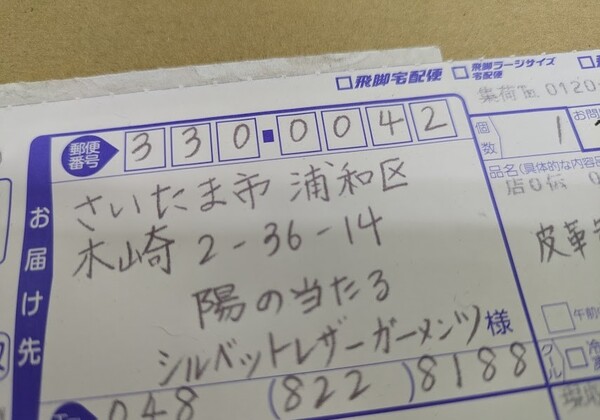 飛脚宅配便
飛脚ラージサイズ
宅配便
集荷 0120-
郵便番号 330-0042
個数 1
お問
お届け先
さいたま市 浦和区
木崎 2-36-14
陽の当たる
シルベットレザーガーメンツ 様
048 (822) 8188
品名(具体的な内容
皮革
午前
クール